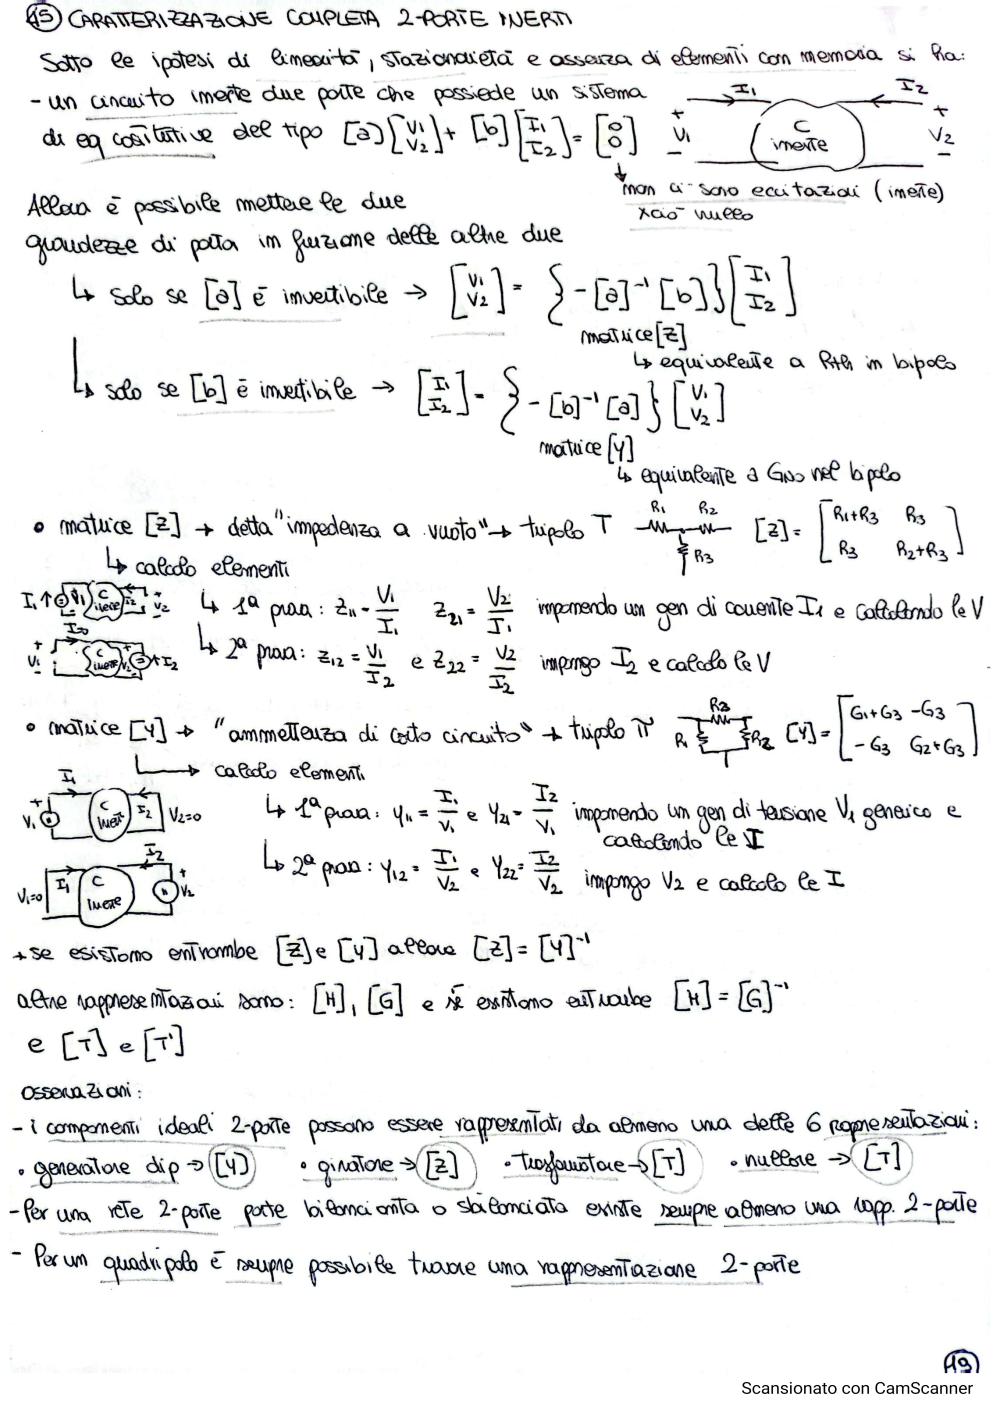 45 CARATTERIZZAZIONE COMPLETA 2-PORTE INERTI
Sotto le ipotesi di linearità, stazionarietà e assenza di elementi con memoria si ha:
- un circuito inerte due porte che possiede un sistema
di eq cositutive del tipo [a][V1 V2] + [b][I1 I2] = [0 0]
I1 I2
+ V1 - C inerte + V2 -
↓ non ci sono eccitazioni (inerte)
xciò nullo
Allora è possibile mettere le due
grandezze di porta in funzione delle altre due
↳ solo se [a] è invertibile → [V1 V2] = {-[a]⁻¹ [b]} [I1 I2]
matrice [Z]
↳ equivalente a Rth in bipolo
↳ solo se [b] è invertibile → [I1 I2] = {-[b]⁻¹ [a]} [V1 V2]
matrice [Y]
↳ equivalente a GNO nel bipolo
• matrice [Z] → detta "impedenza a vuoto" → tripolo T R1 R2 R3 [Z] = [R1+R3 R3 R3 R2+R3]
↳ calcolo elementi
I1 V1 C inerte I2 + V2 -
↳ 1ª prova: Z11 = V1/I1 Z21 = V2/I1 imponendo un gen di corrente I1 e calcolando le V
I=0 + V1 - C inerte V2 I2
↳ 2ª prova: Z12 = V1/I2 e Z22 = V2/I2 impongo I2 e calcolo le V
• matrice [Y] → "ammettenza di corto circuito" → tripolo π R3 R1 R2 [Y] = [G1+G3 -G3 -G3 G2+G3]
↳ calcolo elementi
I1 + V1 - C inerte I2 V2=0
↳ 1ª prova: Y11 = I1/V1 e Y21 = I2/V1 imponendo un gen di tensione V1 generico e
calcolando le I
V1=0 I1 C inerte I2 + V2
↳ 2ª prova: Y12 = I1/V2 e Y22 = I2/V2 impongo V2 e calcolo le I
→ se esistono entrambe [Z] e [Y] allora [Z] = [Y]⁻¹
altre rappresentazioni sono: [H], [G] e se esistono entrambe [H] = [G]⁻¹
e [T] e [T']
Osservazioni:
- i componenti ideali 2-porte possono essere rappresentati da almeno una delle 6 rappresentazioni:
• generatore dip → [Y] • giratore → [Z] • trasformatore → [T] • nullore → [T]
- Per una rete 2-porte porte bilanciata o sbilanciata esiste sempre almeno una rapp. 2-porte
- Per un quadripolo è sempre possibile trovare una rappresentazione 2-porte
19
Scansionato con CamScanner